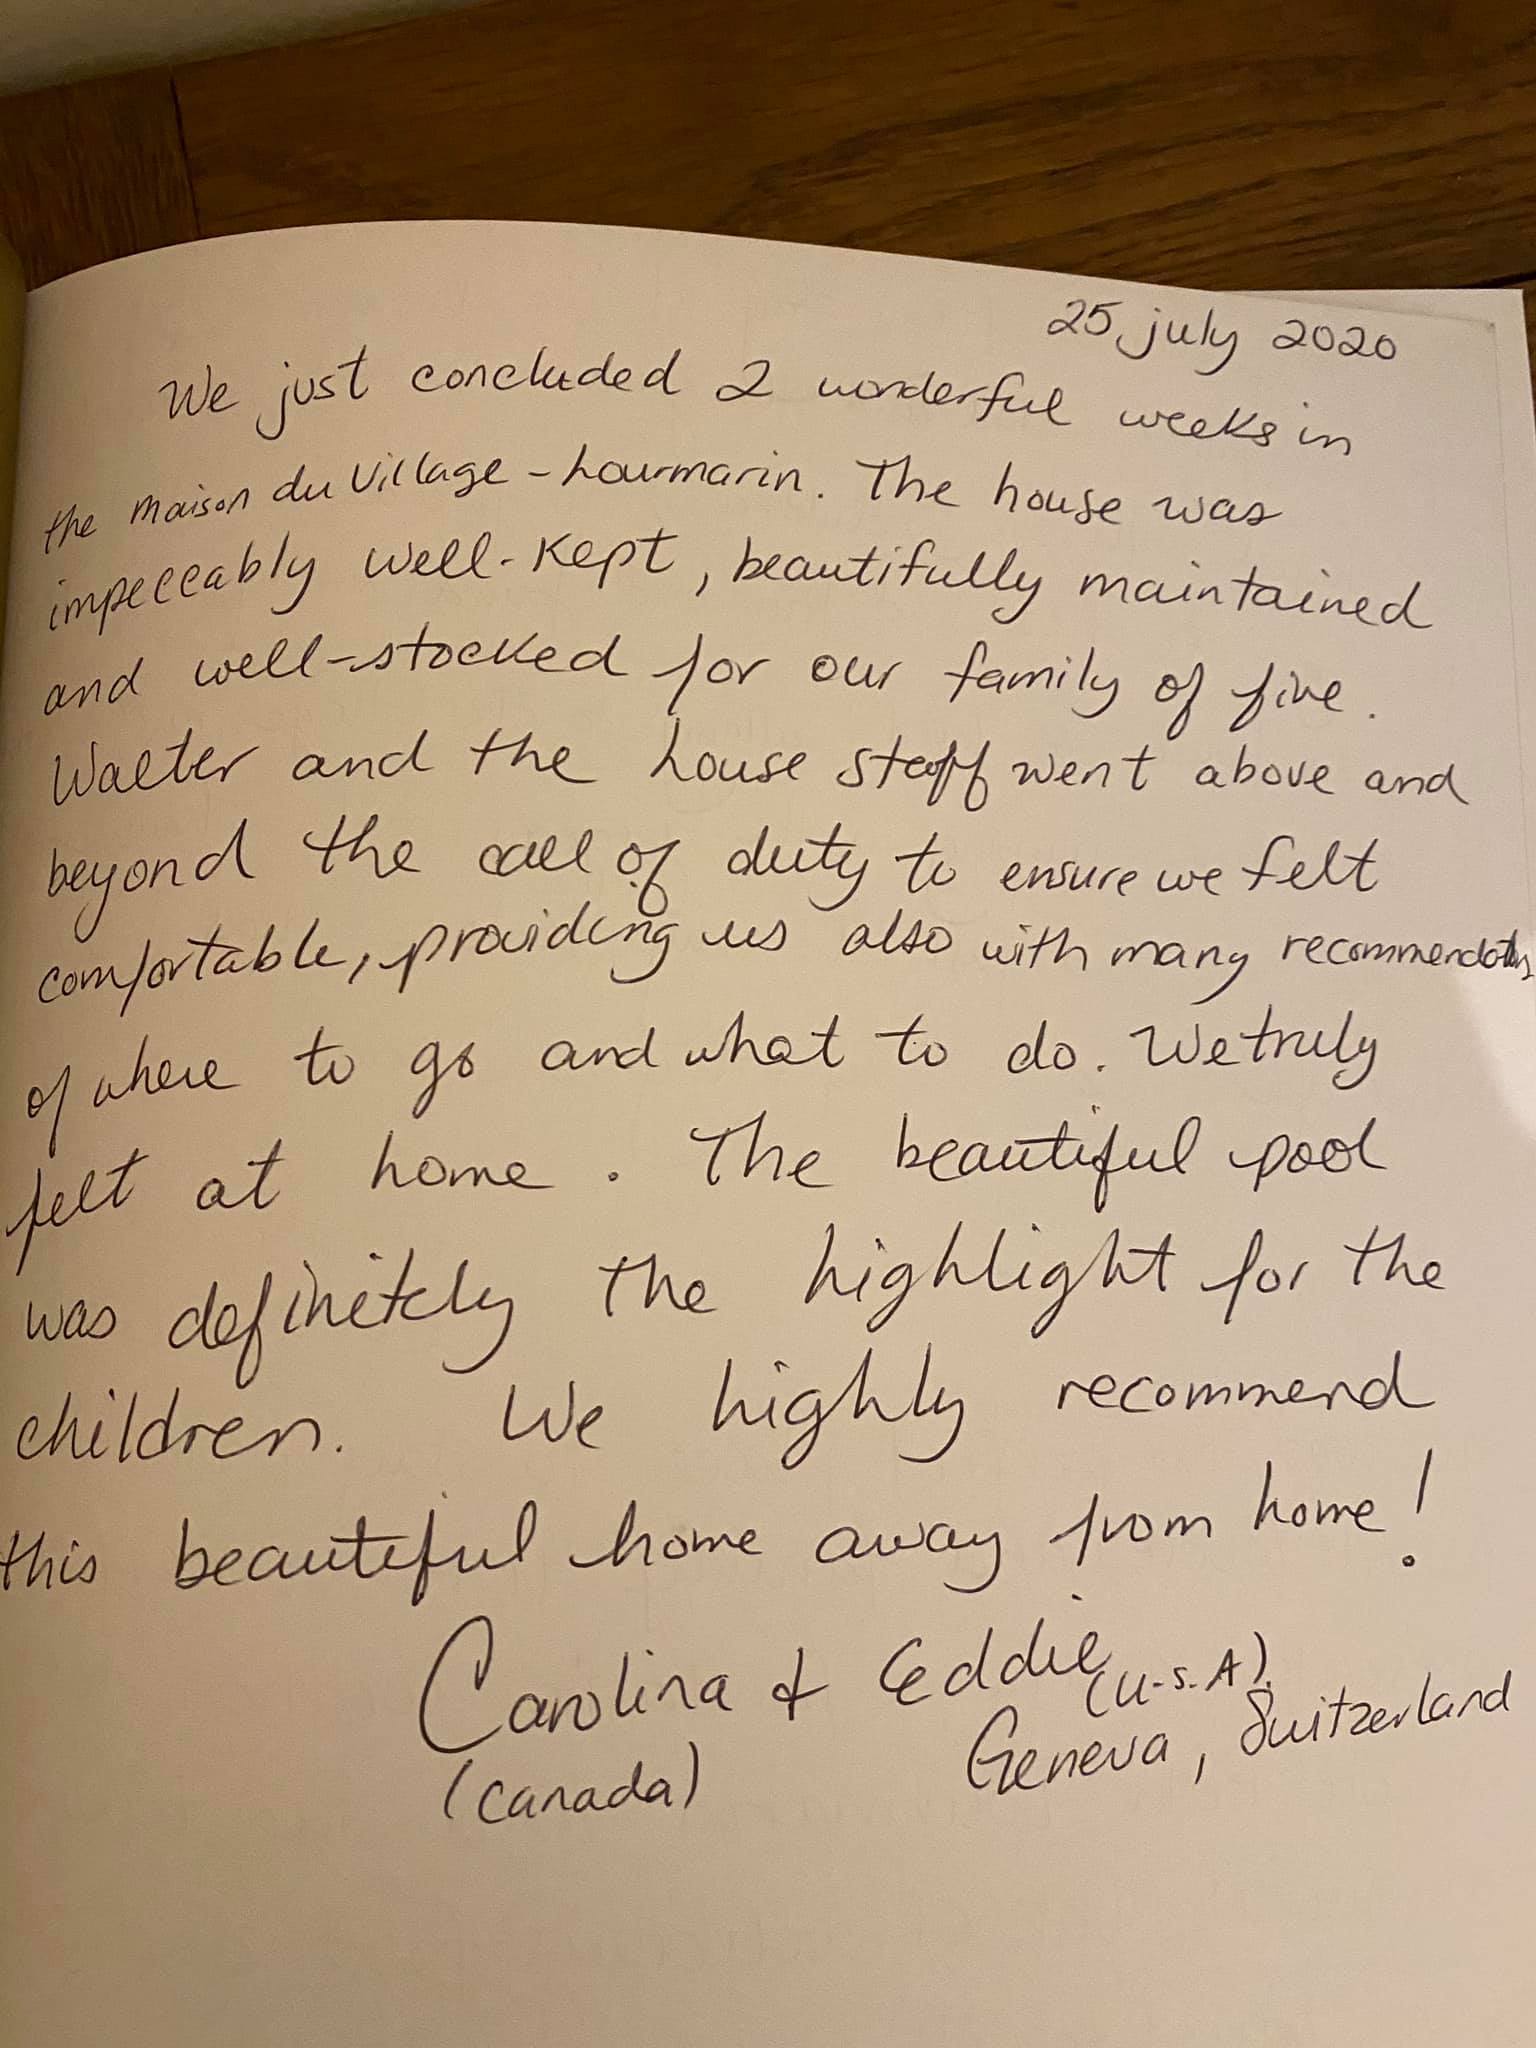 25 july 2020
We just concluded 2 wonderful weeks in
the maison du Village - Lourmarin. The house was
impeccably well-kept, beautifully maintained
and well-stocked for our family of five.
Walter and the house staff went above and
beyond the call of duty to ensure we felt
comfortable, providing us also with many recommendations
of where to go and what to do. We truly
felt at home. The beautiful pool
was definitely the highlight for the
children. We highly recommend
this beautiful home away from home!
Carolina & Eddie (U.S.A)
(Canada) Geneva, Switzerland